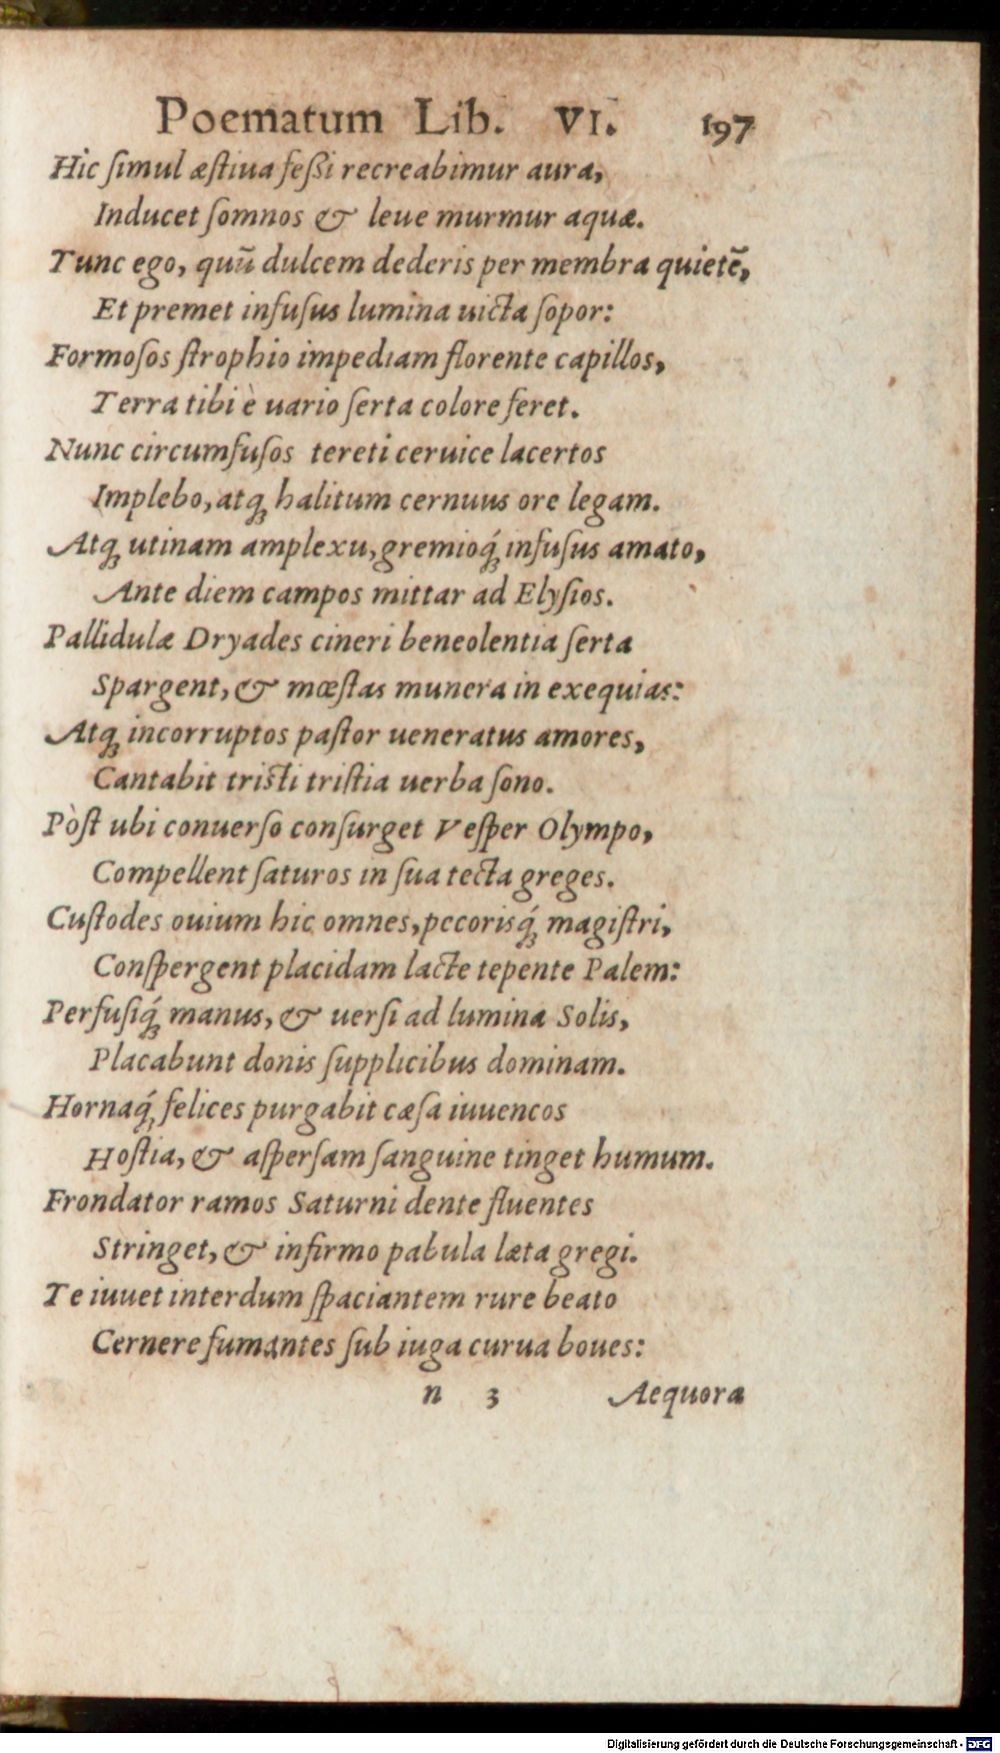 Poematum Lib. VI. 197
Hic ſimul æſtiua feßi recreabimur aura,
Inducet ſomnos & leue murmur aquæ.
Tunc ego, quũ dulcem dederis per membra quietẽ,
Et premet infuſus lumina uicta ſopor:
Formoſos ſtrophio impediam florente capillos,
Terra tibi è uario ſerta colore feret.
Nunc circumfuſos tereti ceruice lacertos
Implebo, atq́ꝫ halitum cernuus ore legam.
Atqꝫ utinam amplexu, gremioq́ꝫ infuſus amato,
Ante diem campos mittar ad Elyſios.
Pallidulæ Dryades cineri beneolentia ſerta
Spargent, & mœſtas munera in exequias:
Atqꝫ incorruptos paſtor ueneratus amores,
Cantabit triſti triſtia uerba ſono.
Pòſt ubi conuerſo conſurget Veſper Olympo,
Compellent ſaturos in ſua tecta greges.
Cuſtodes ouium hic omnes, pecorisq́ꝫ magiſtri,
Conſpergent placidam lacte tepente Palem:
Perfuſiq́ꝫ manus, & uerſi ad lumina Solis,
Placabunt donis ſupplicibus dominam.
Hornaq́ꝫ felices purgabit cæſa iuuencos
Hoſtia, & aſperſam ſanguine tinget humum.
Frondator ramos Saturni dente fluentes
Stringet, & infirmo pabula læta gregi.
Te iuuet interdum ſpaciantem rure beato
Cernere fumantes ſub iuga curua boues:
n 3 Aequora
Digitalisierung gefördert durch die Deutsche Forschungsgemeinschaft - DFG